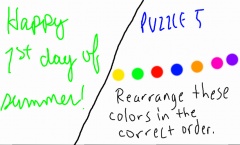 Happy
1st day of
summer!
PUZZLE 5
Rearrange these
colors in the
correct order.